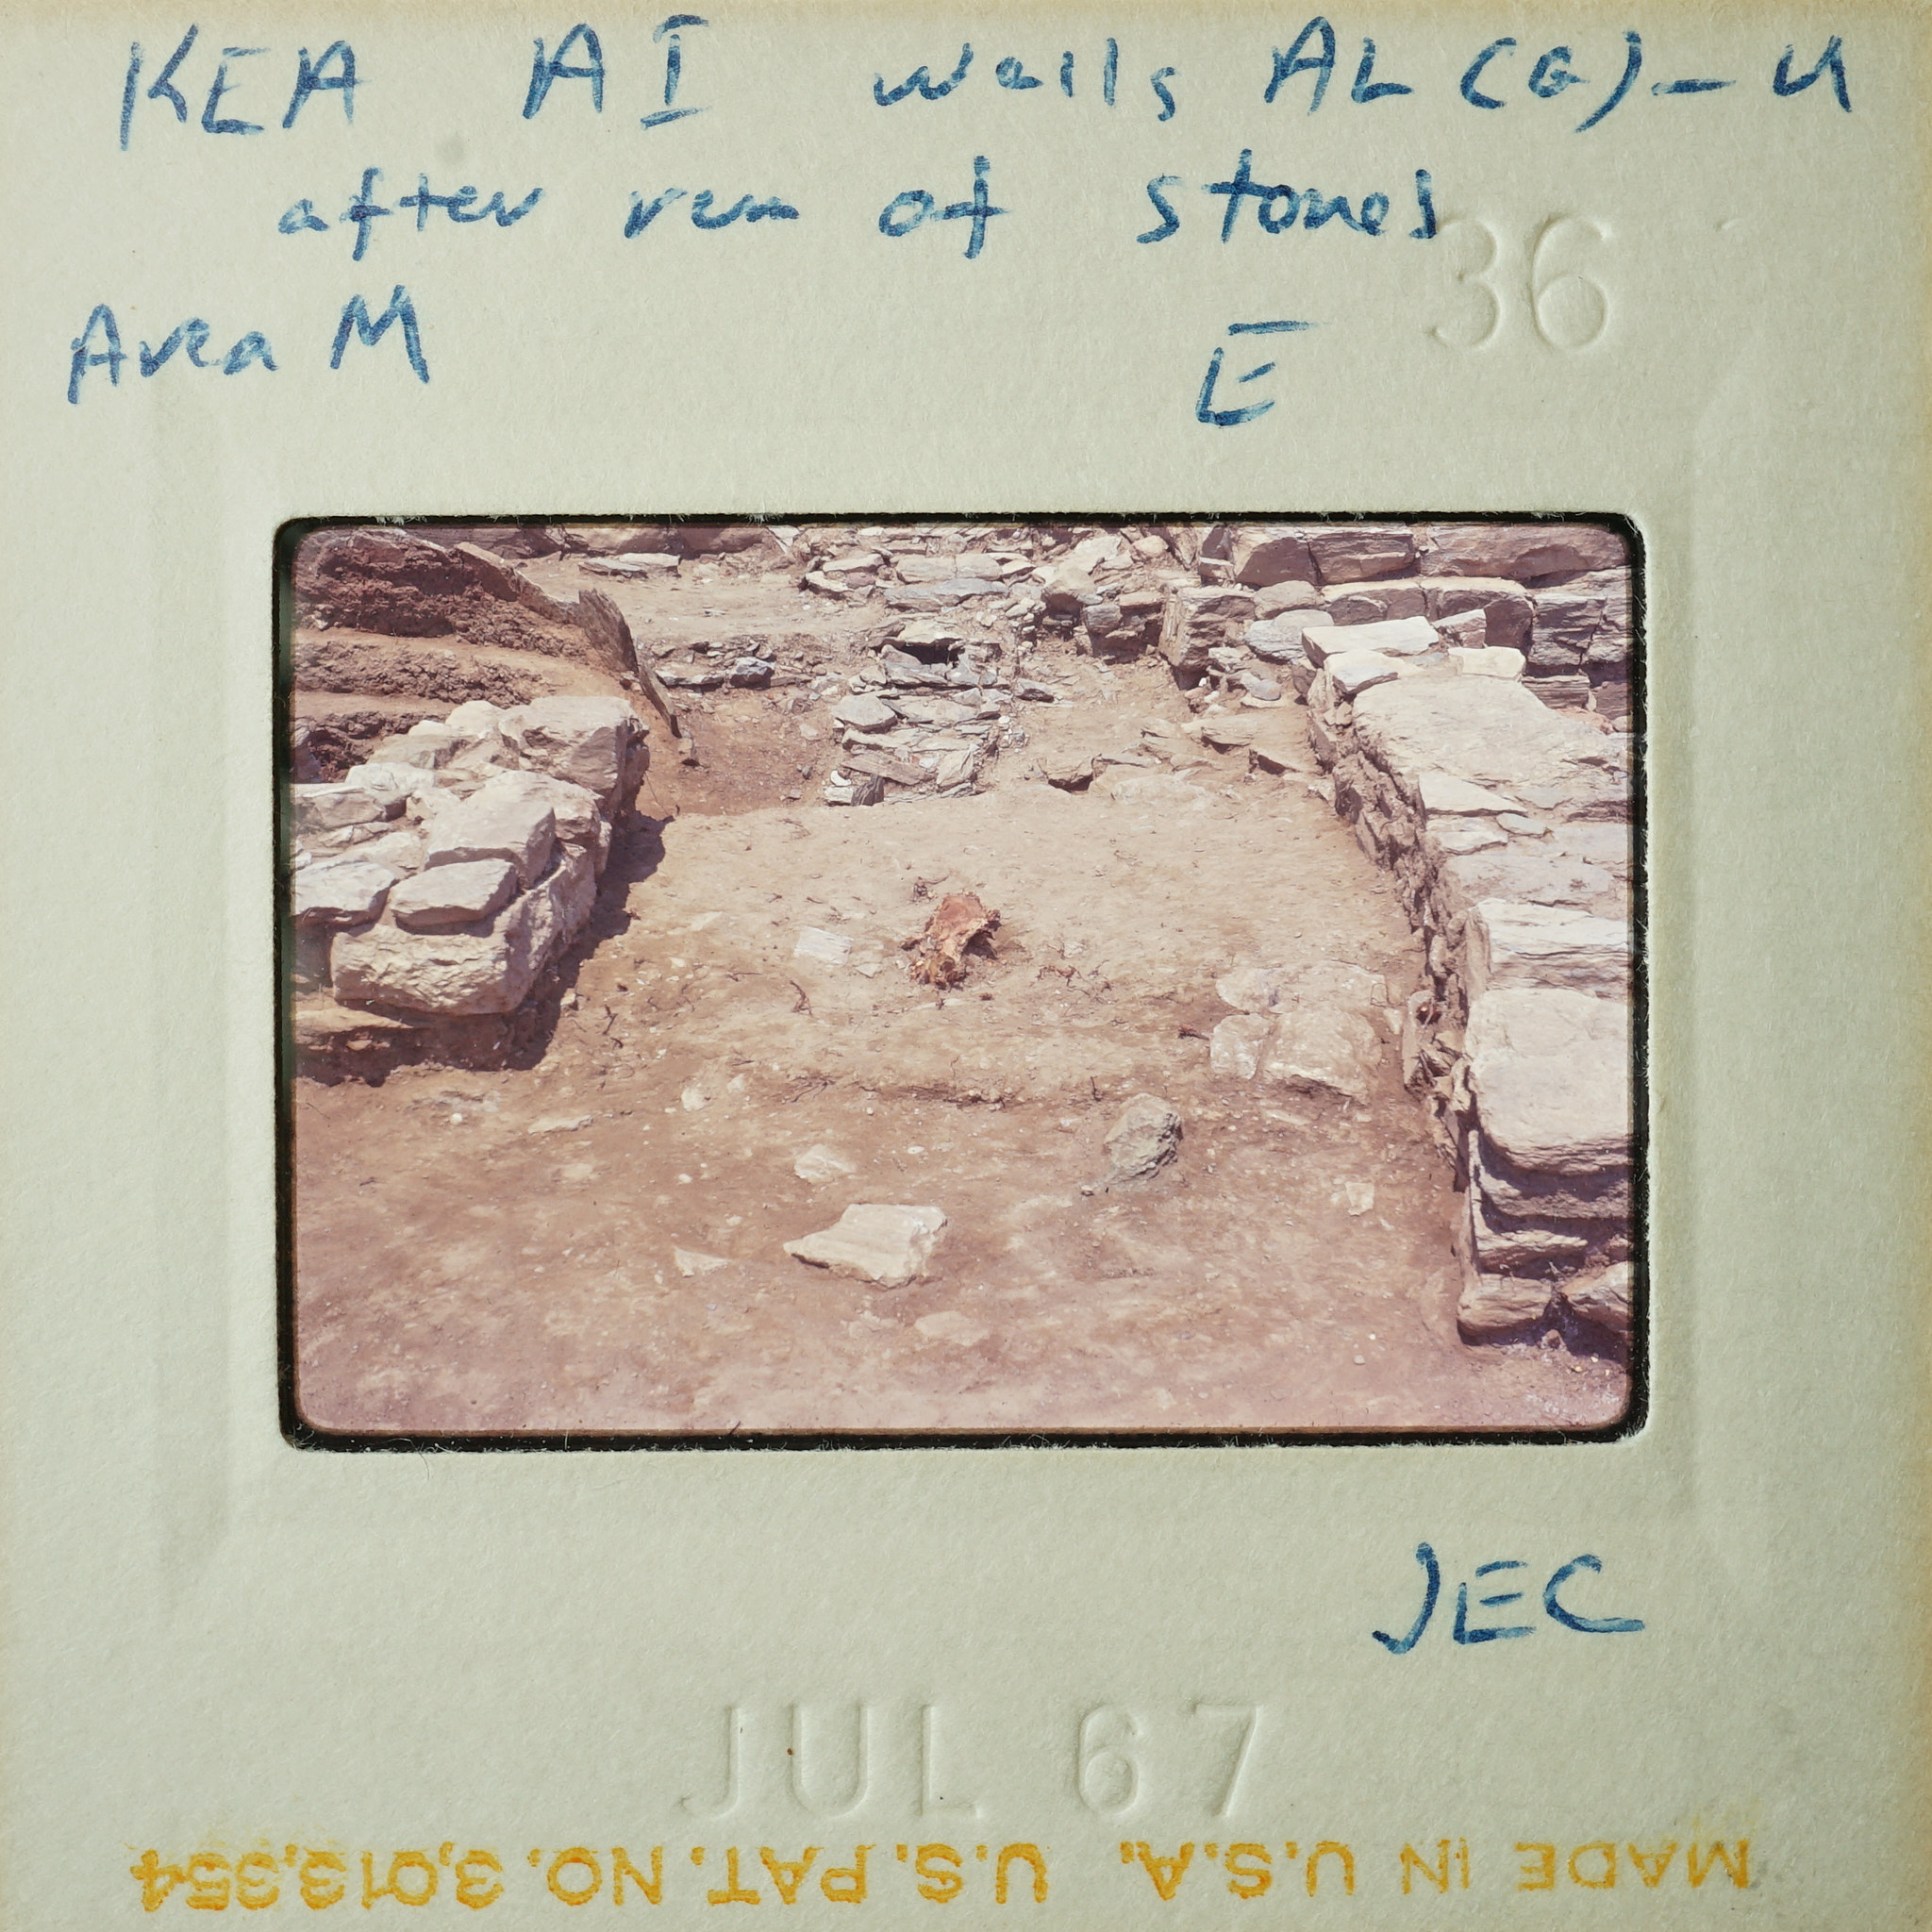 KEA AI walls AL(G)-U
after rem of stones
36
Area M
E
JEC
JUL 67
MADE IN U.S.A. U.S. PAT. NO. 3,013,354